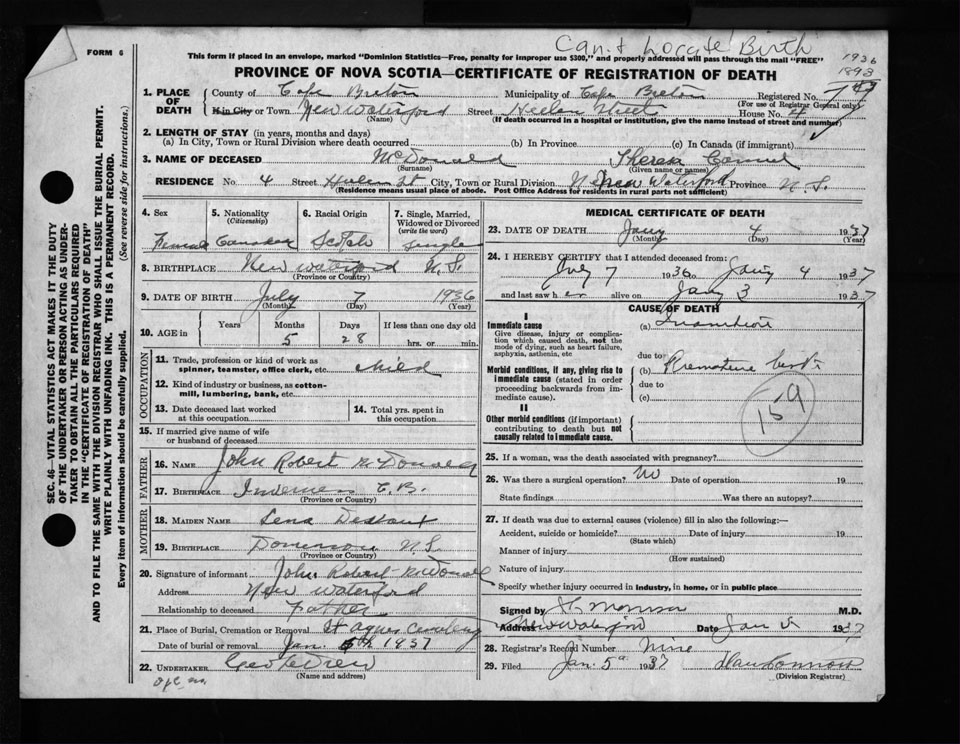 Can't Locate Birth
FORM 6
This form if placed in an envelope, marked "Dominion Statistics—Free, penalty for improper use $300," and properly addressed will pass through the mail "FREE"
1936
1898
PROVINCE OF NOVA SCOTIA—CERTIFICATE OF REGISTRATION OF DEATH
1. PLACE OF DEATH
County of Cape Breton Municipality of Cape Breton Registered No.
(For use of Registrar General only)
If in City or Town New Waterford Street Heelen Street House No. 4
(Name) (If death occurred in a hospital or institution, give the name instead of street and number)
2. LENGTH OF STAY (in years, months and days)
(a) In City, Town or Rural Division where death occurred (b) In Province (c) In Canada (if immigrant)
3. NAME OF DECEASED McDonald Theresa
(Surname) (Given name or names)
RESIDENCE No. 4 Street Heelen St City, Town or Rural Division New Waterford Province N.S.
(Residence means usual place of abode. Post Office Address for residents in rural parts not sufficient)
4. Sex Female
5. Nationality (Citizenship) Canadian
6. Racial Origin Scotch
7. Single, Married, Widowed or Divorced (write the word) Single
8. BIRTHPLACE New Waterford N.S.
(Province or Country)
9. DATE OF BIRTH July 7 1936
(Month) (Day) (Year)
10. AGE in Years Months Days If less than one day old
5 28 hrs. or min.
OCCUPATION
11. Trade, profession or kind of work as spinner, teamster, office clerk, etc. child
12. Kind of industry or business, as cotton-mill, lumbering, bank, etc.
13. Date deceased last worked at this occupation
14. Total yrs. spent in this occupation
15. If married give name of wife or husband of deceased
FATHER
16. NAME John Robert McDonald
17. BIRTHPLACE Inverness C.B.
(Province or Country)
MOTHER
18. MAIDEN NAME Lena
19. BIRTHPLACE Dominion N.S.
(Province or Country)
20. Signature of informant John Robert McDonald
Address New Waterford
Relationship to deceased Father
21. Place of Burial, Cremation or Removal St Agnes Cemetery
Date of burial or removal Jan. 5th 1937
22. UNDERTAKER
(Name and address)
MEDICAL CERTIFICATE OF DEATH
23. DATE OF DEATH Jany 4 1937
(Month) (Day) (Year)
24. I HEREBY CERTIFY that I attended deceased from:
July 7 1936 to Jany 4 1937
and last saw her alive on Jany 3 1937
CAUSE OF DEATH
I
Immediate cause
Give disease, injury or complication which caused death, not the mode of dying, such as heart failure, asphyxia, asthenia, etc
(a) Inanition
due to
Morbid conditions, if any, giving rise to immediate cause (stated in order proceeding backwards from immediate cause).
(b) Premature birth
due to
(c)
159
II
Other morbid conditions (if important) contributing to death but not causally related to immediate cause.
25. If a woman, was the death associated with pregnancy?
26. Was there a surgical operation? No Date of operation 19
State findings Was there an autopsy?
27. If death was due to external causes (violence) fill in also the following:—
Accident, suicide or homicide? Date of injury 19
(State which)
Manner of injury
(How sustained)
Nature of injury
Specify whether injury occurred in industry, in home, or in public place
Signed by M.D.
Address New Waterford Date Jan 5 1937
28. Registrar's Record Number Nine
29. Filed Jan. 5 1937
(Division Registrar)
SEC. 46—VITAL STATISTICS ACT MAKES IT THE DUTY
OF THE UNDERTAKER OR PERSON ACTING AS UNDER-
TAKER TO OBTAIN ALL THE PARTICULARS REQUIRED
IN THE "CERTIFICATE OF REGISTRATION OF DEATH"
AND TO FILE THE SAME WITH THE DIVISION REGISTRAR WHO SHALL ISSUE THE BURIAL PERMIT.
WRITE PLAINLY WITH UNFADING INK. THIS IS A PERMANENT RECORD.
Every item of information should be carefully supplied. (See reverse side for instructions.)